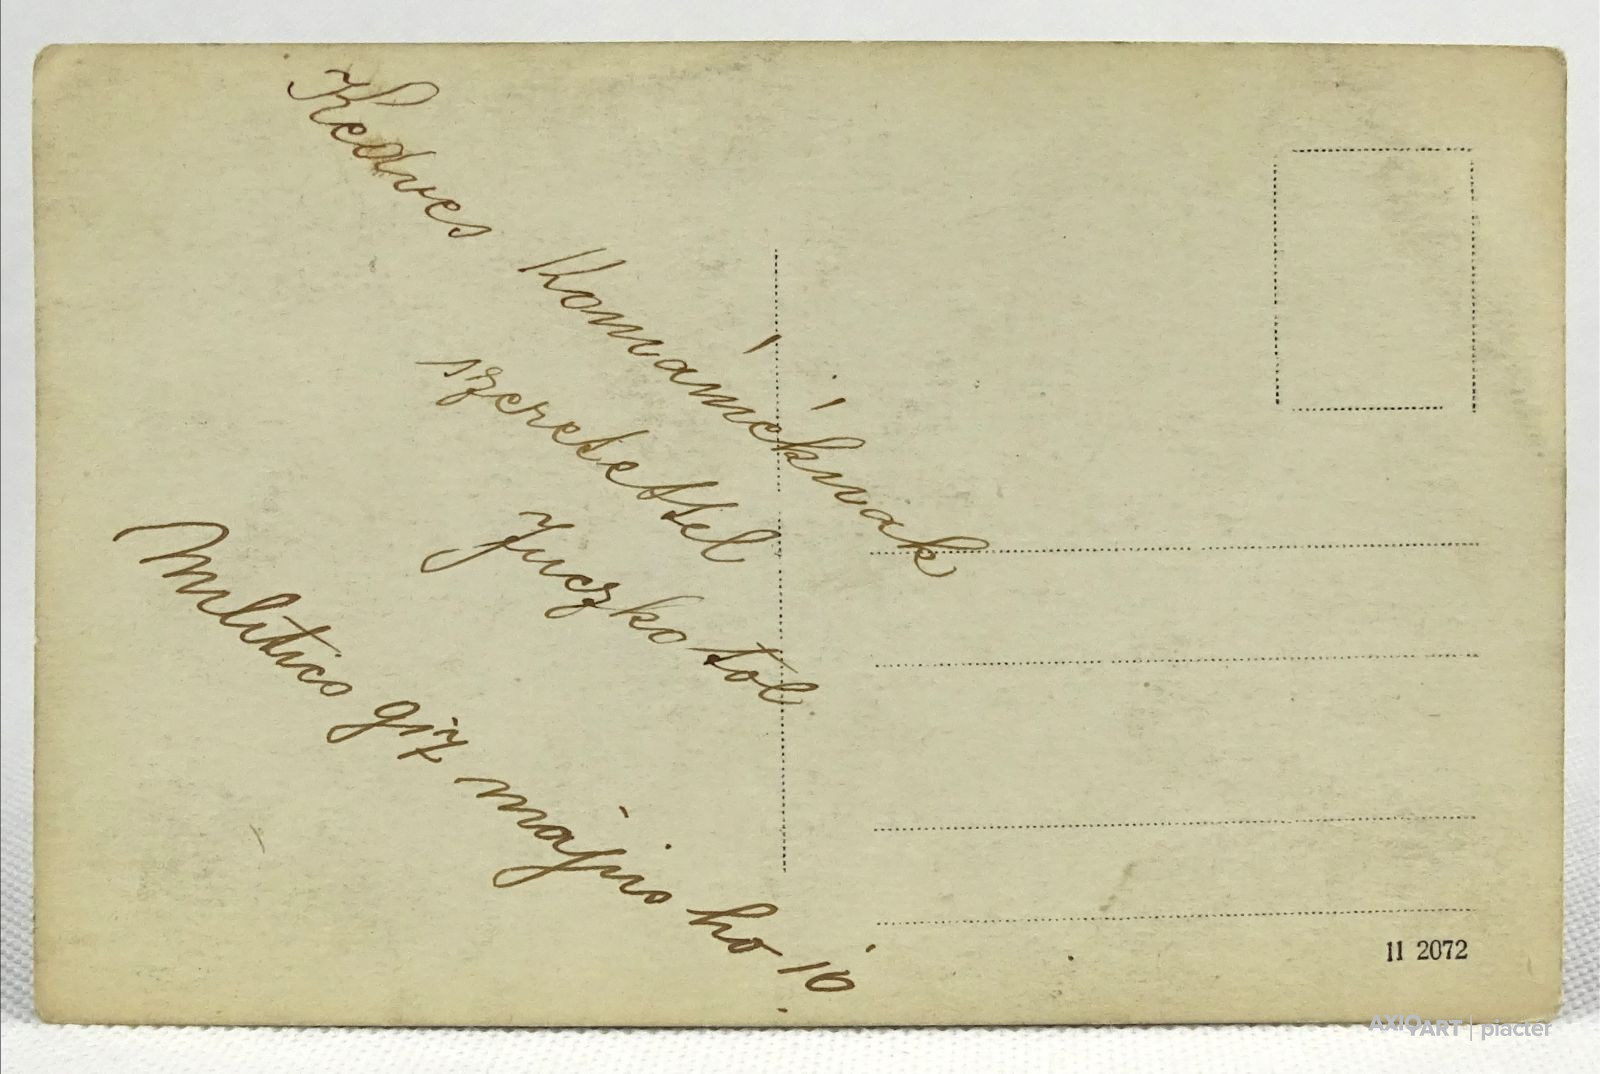 Kedves Komáméknak
szeretettel
Juczkotol
Militics 917 május ho 10
11 2072
AXIOART | piactér